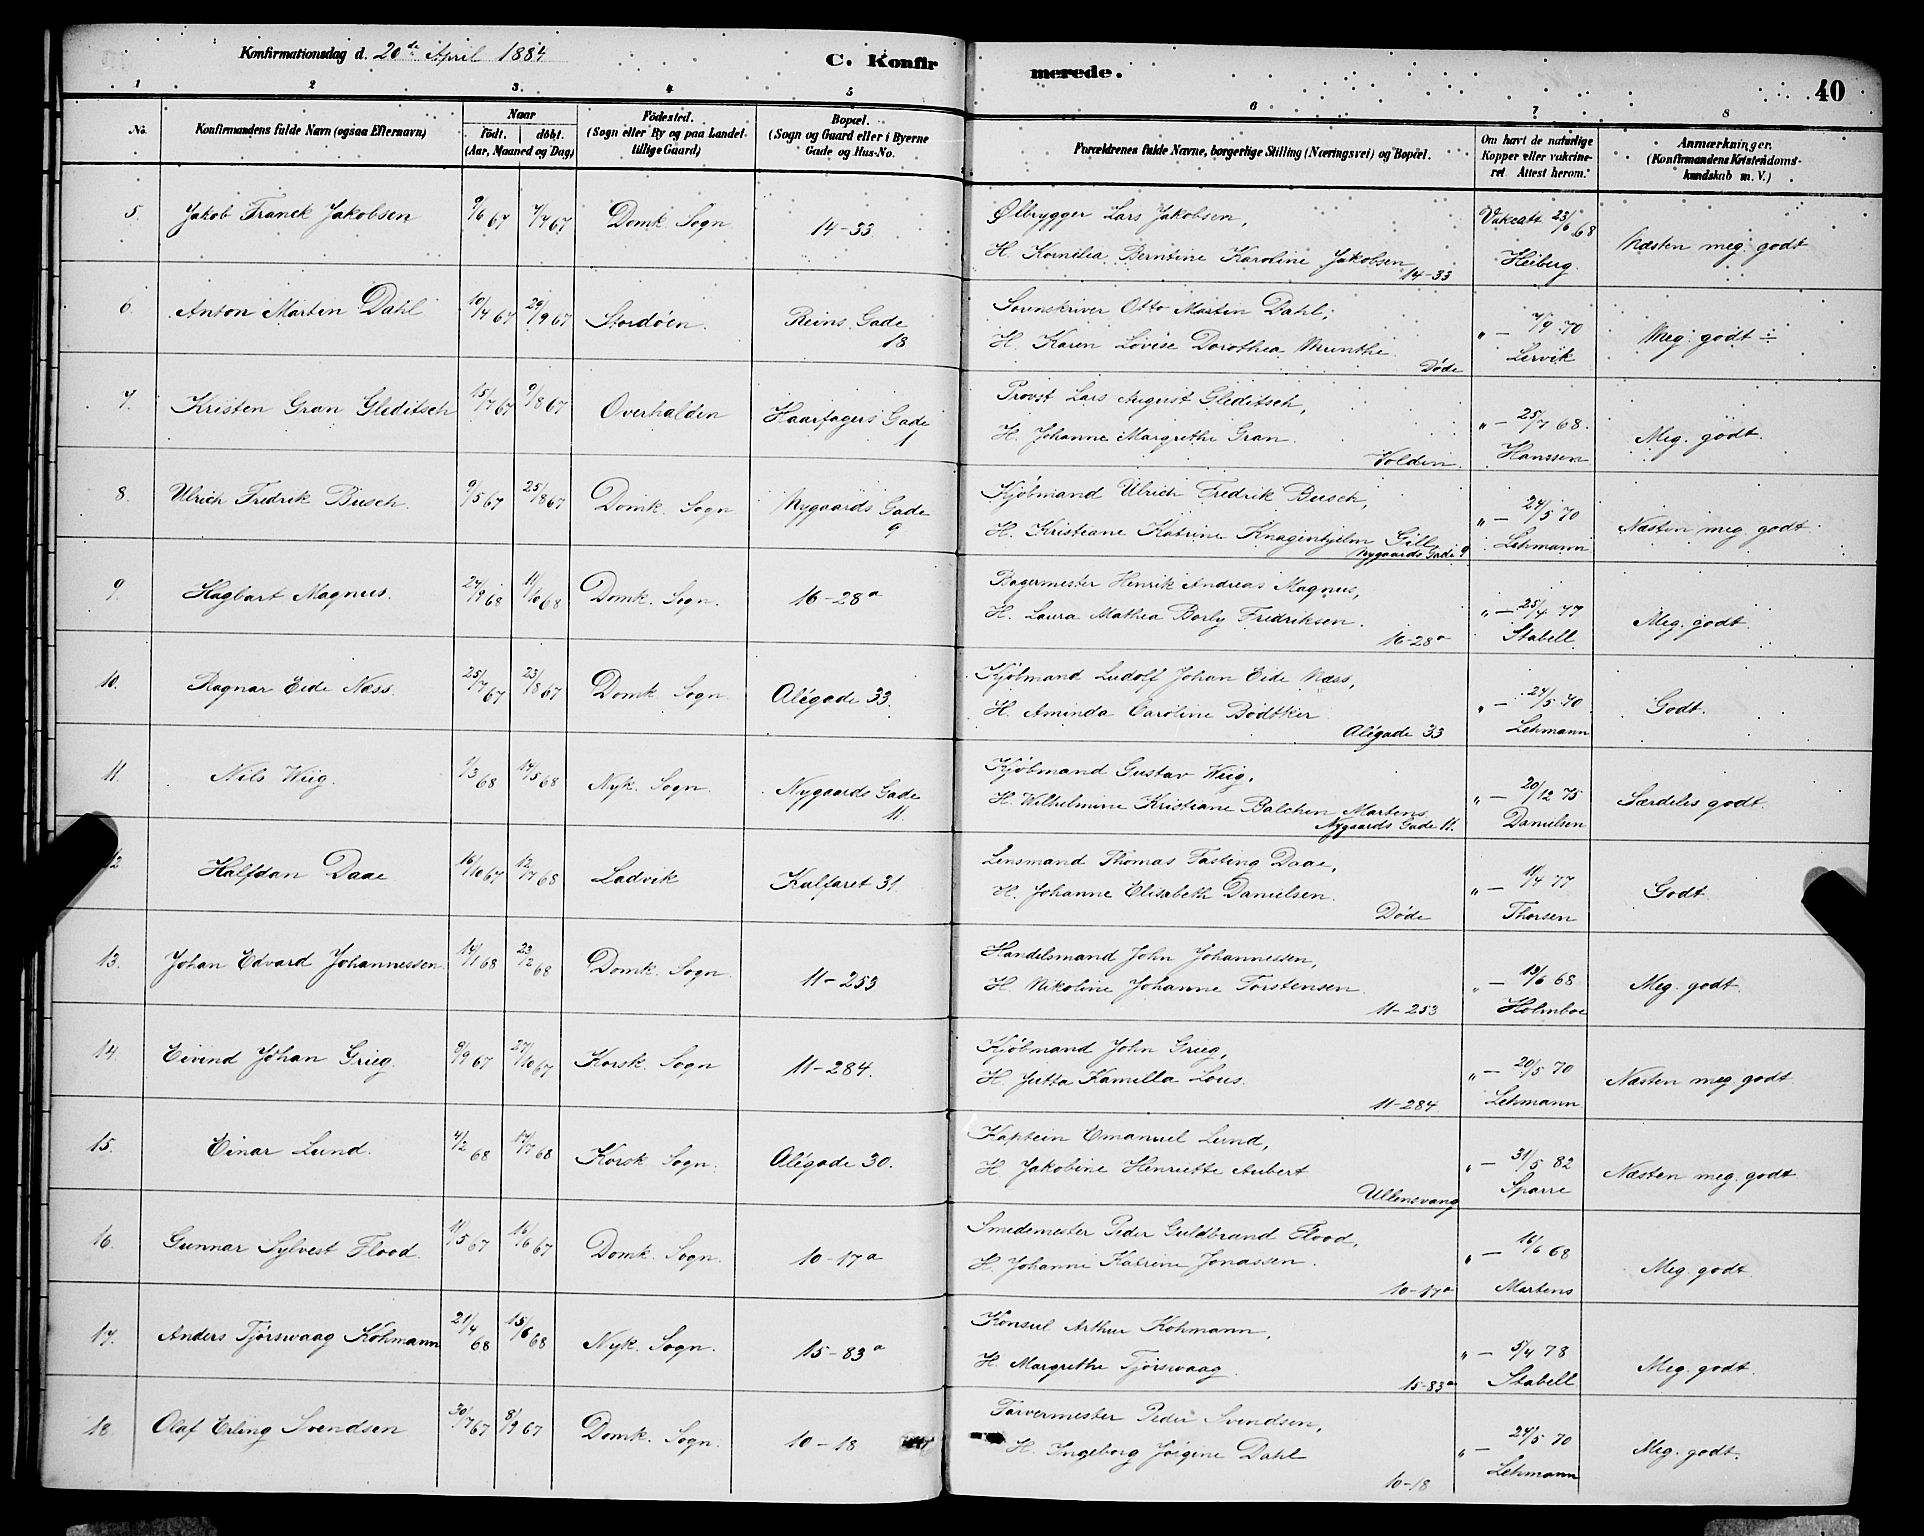 Konfirmationsdag d. 20de April 1884
C. Konfirmerede.
40
1 2 3. 4 5 6 7 8
No.
Konfirmandens fulde Navn (ogsaa Efternavn)
Naar
født. døbt.
(Aar, Maaned og Dag)
Fødested.
(Sogn eller By og paa Landet tillige Gaard)
Bopæl.
(Sogn og Gaard eller i Byerne Gade og Hus-No.
Forældrenes fulde Navne, borgerlige Stilling (Næringsvei) og Bopæl.
Om havt de naturlige Kopper eller vakcineret. Attest herom.
Anmærkninger.
(Konfirmandens Kristendomskundskab m. V.)
5. Jakob Franck Jakobsen 9/6 67 7/7 67 Domk. Sogn 14-33
Ølbrygger Lars Jakobsen,
H. Kornelia Berntine Karoline Jakobsen 14-33
Vakcatt 23/6 68 Heiberg.
Næsten meg. godt
6. Anton Martin Dahl 10/4 67 29/9 67 Stordøen. Reins Gade 18
Sorenskriver Otto Martin Dahl;
H. Karen Lovise Dorothea Munthe. Døde
" — 7/9 70 Lervik
Meg. godt ÷
7. Kristen Gran Gleditsch 15/7 67 9/8 67 Overhalden Haarfagers Gade 1
Provst Lars August Gleditsch,
H. Johanne Margrethe Gran. Volden.
" — 25/7 68. Hanssen
Meg. godt.
8. Ulrich Fredrik Busch. 9/5 67 25/8 67 Domk. Sogn Nygaards Gade 9
Kjøbmand Ulrich Fredrik Busch,
H. Kristiane Katrine Knagenhjelm Gill Nygaards Gade 9
" — 24/5 70 Lehmann
Næsten meg. godt.
9. Hagbart Magnus. 27/9 68 11/10 68 Domk. Sogn. 16-28a
Bagermester Henrik Andreas Magnus,
H. Laura Mathea Borly Fredriksen. 16-28a
" — 25/4 77 Stabell
Meg. godt.
10. Ragnar Eide Næss. 25/7 67 23/8 67 Domk. Sogn. Alégade 33.
Kjøbmand Ludolf Johan Eide Næss,
H. Aminda Caroline Bødtker Alégade 33
" — 24/5 70. Lehmann
Godt.
11. Nils Wiig. 1/3 68 17/5 68 Nyk. Sogn. Nygaards Gade 11.
Kjøbmand Gustav Wiig,
H. Wilhelmine Kristiane Balchen Martens. Nygaards Gade 11.
" — 20/12 75 Danielsen
Særdeles godt.
12 Halfdan Daae 16/10 67 12/7 68 Ladvik Kalfaret 31.
Lensmand Thomas Fasting Daae,
H. Johanne Elisabeth Danielsen. Døde
" — 11/4 77 Thorsen
Godt.
13. Johan Edvard Johannessen 14/1 68 23/2 68 Domk. Sogn. 11-253
Handelsmand John Johannessen,
H. Nikoline Johanne Torstensen. 11-253
" — 19/6 68 Holmboe
Meg. godt.
14. Eivind Johan Grieg. 8/9 67 27/10 67 Korsk. Sogn 11-284.
Kjøbmand John Grieg,
H. Jutta Kamilla Lous. 11-284
" — 20/5 70 Lehmann
Næsten meg. godt.
15. Einar Lund. 4/2 68 17/7 68 Korsk. Sogn. Alégade 30.
Kaptein Emanuel Lund,
H. Jakobine Henriette Aubert Ullensvang
" — 31/5 82 Sparre
Næsten meg. godt
16. Gunnar Sylvest Flood. 11/5 67 16/6 67 Domk. Sogn. 10-17a
Smedemester Peder Guldbrand Flood,
H. Johanne Katrine Jonassen. 10-17a
" — 16/6 68 Martens
Meg. godt
17. Anders Tjørswaag Kohmann 21/4 68 15/6 68 Nyk. Sogn. 15-83a
Konsul Arthur Kohmann,
H. Margrethe Tjørswaag. 15-83a
" — 5/4 78 Stabell
Meg. godt.
18. Olaf Erling Svendsen 30/7 67 8/9 67 Domk. Sogn. 10-18
Farvermester Peder Svendsen,
H. Ingeborg Jørgine Dahl 10-18
" — 24/5 70 Lehmann
Meg. godt.